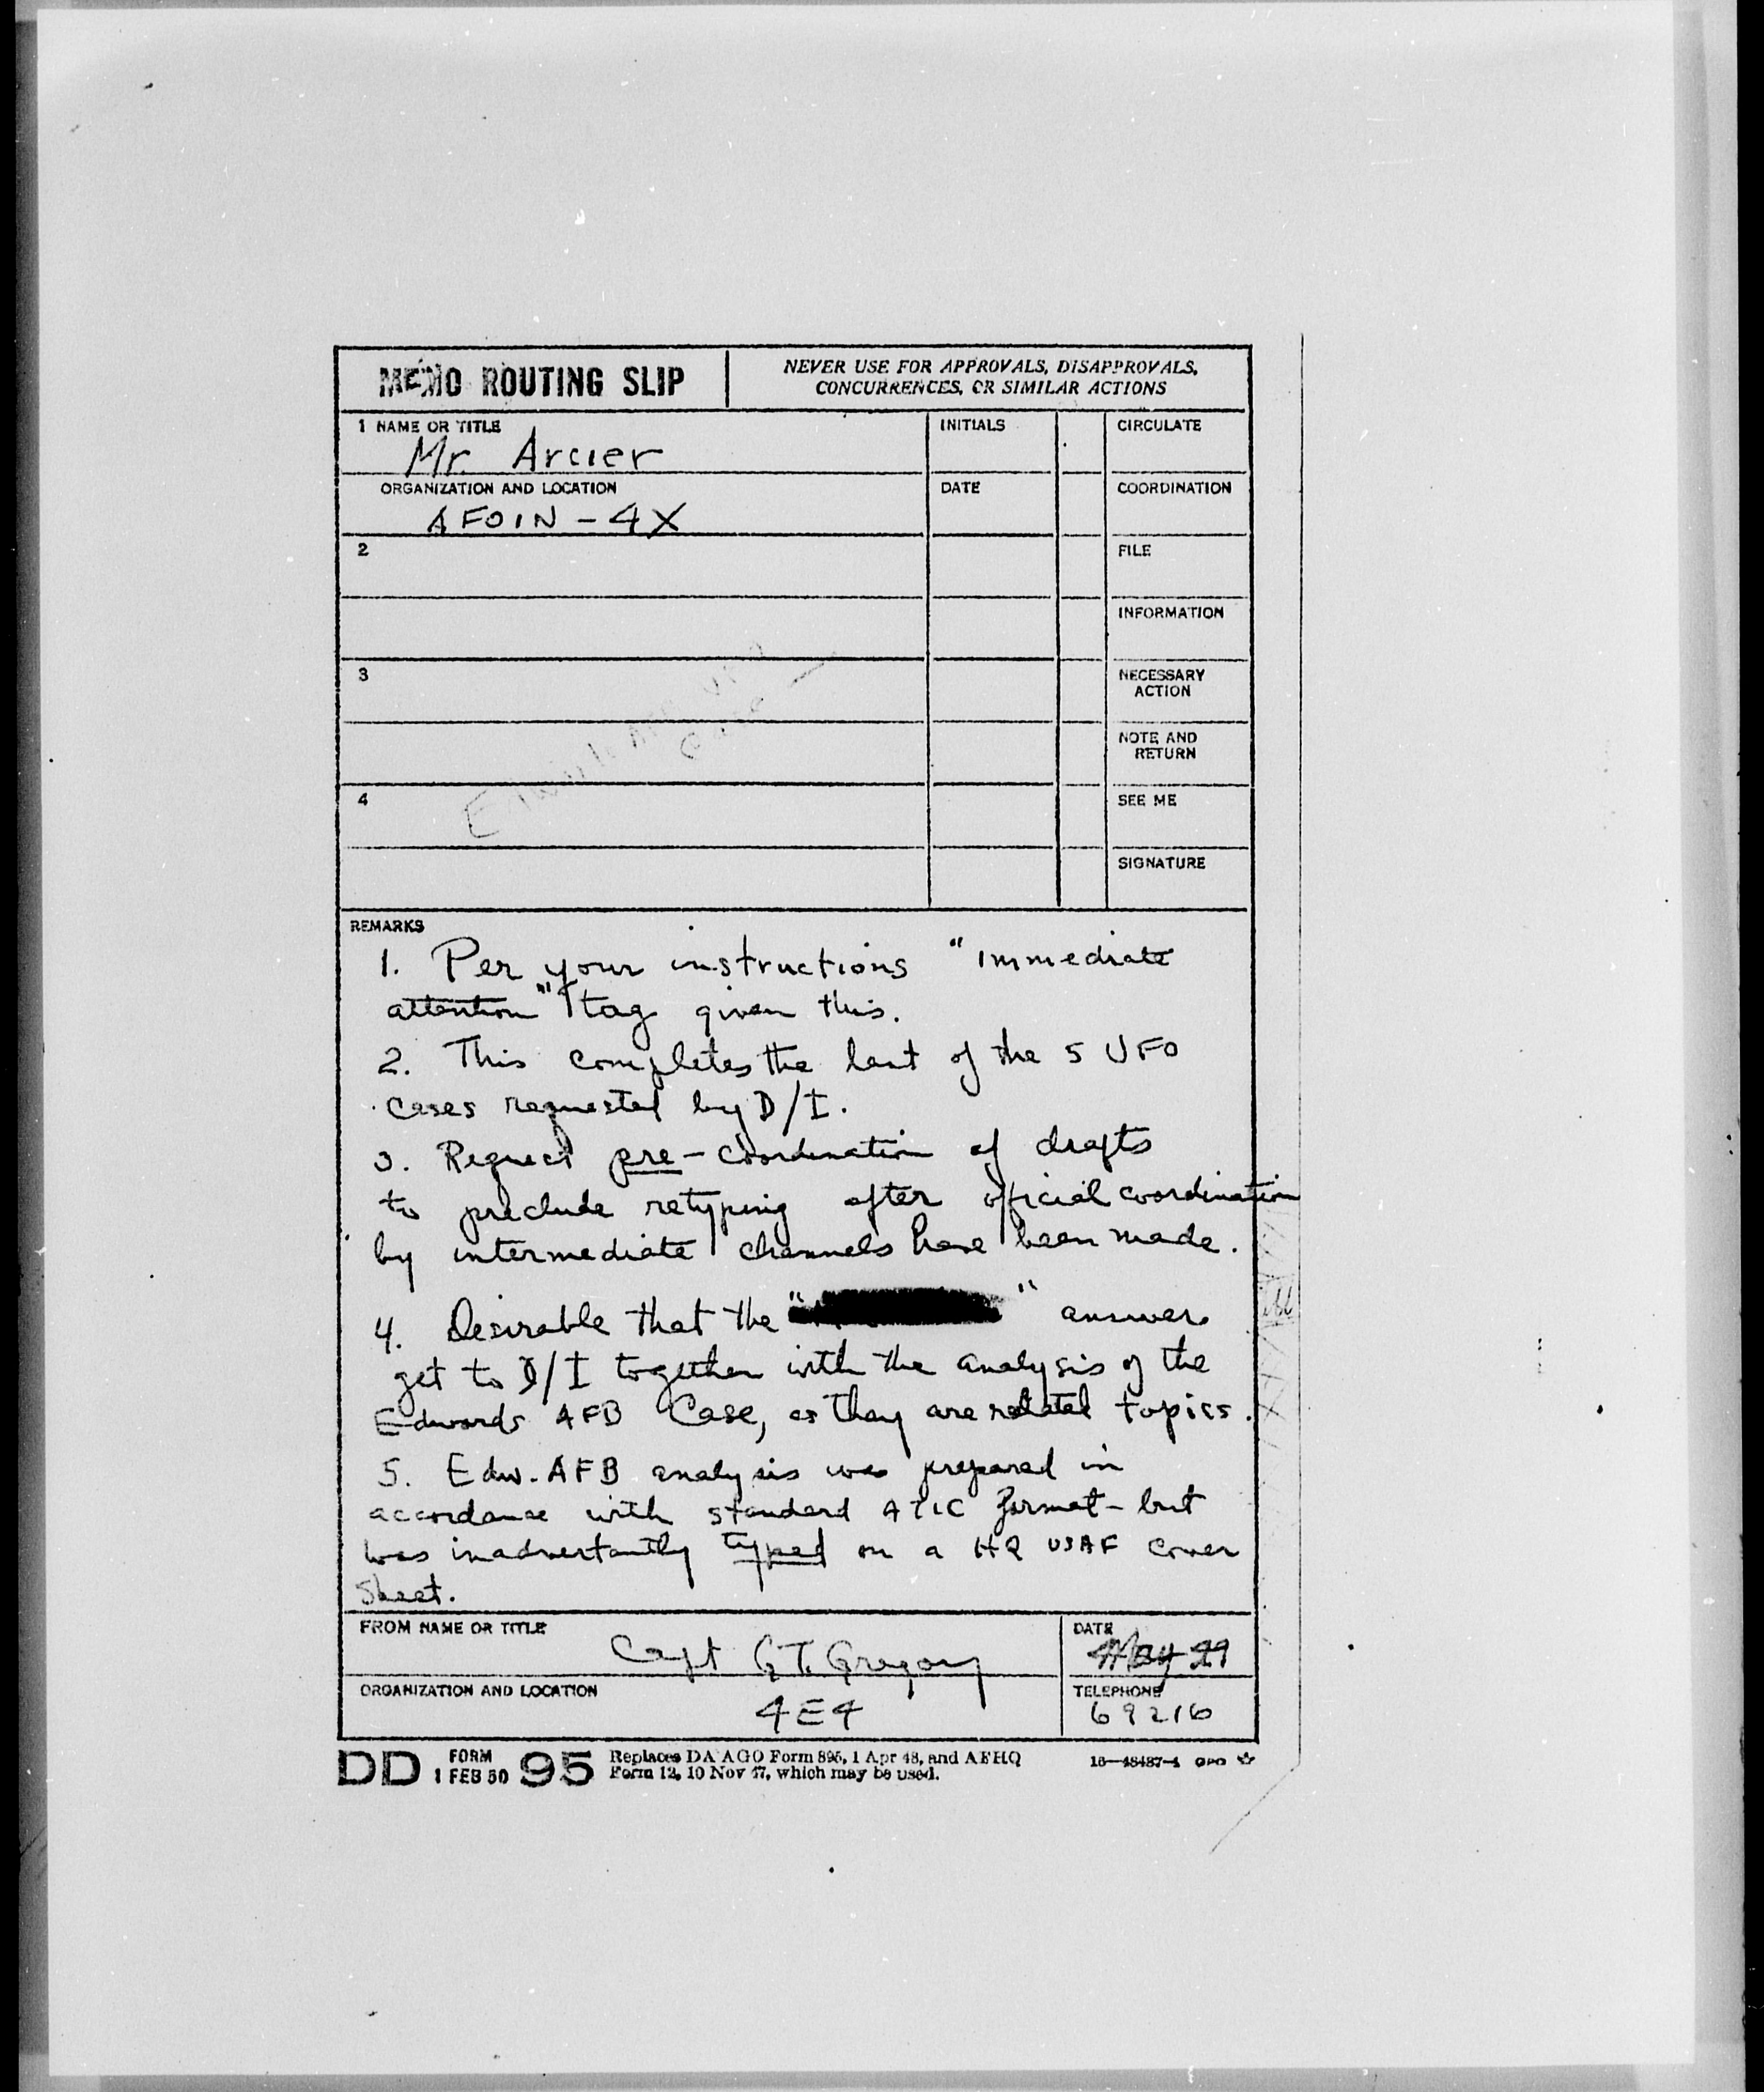 MEMO ROUTING SLIP
NEVER USE FOR APPROVALS, DISAPPROVALS,
CONCURRENCES, OR SIMILAR ACTIONS
1 NAME OR TITLE
Mr. Arcier
INITIALS
CIRCULATE
ORGANIZATION AND LOCATION
AFOIN - 4X
DATE
COORDINATION
2
FILE
INFORMATION
3
NECESSARY
ACTION
NOTE AND
RETURN
4
SEE ME
SIGNATURE
REMARKS
1. Per your instructions "immediate
attention" tag given this.
2. This completes the last of the 5 UFO
cases requested by D/I.
3. Request pre-coordination of drafts
to preclude retyping after official coordination
by intermediate channels have been made.
4. Desirable that the " " answer
get to D/I together with the analysis of the
Edwards AFB Case, as they are related topics.
5. Edw. AFB analysis was prepared in
accordance with standard ATIC format - but
was inadvertantly typed on a HQ USAF cover
sheet.
FROM NAME OR TITLE
Capt G.T. Gregory
DATE
May 29
ORGANIZATION AND LOCATION
4E4
TELEPHONE
69216
DD FORM 1 FEB 50 95
Replaces DA AGO Form 895, 1 Apr 48, and AFHQ
Form 12, 10 Nov 47, which may be used.
16—48487-4 GPO